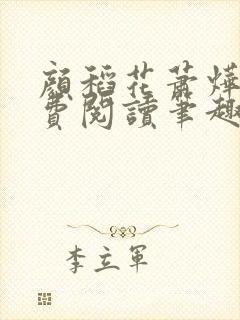 顏稻花蕭燁
費閱讀筆趣
李立軍